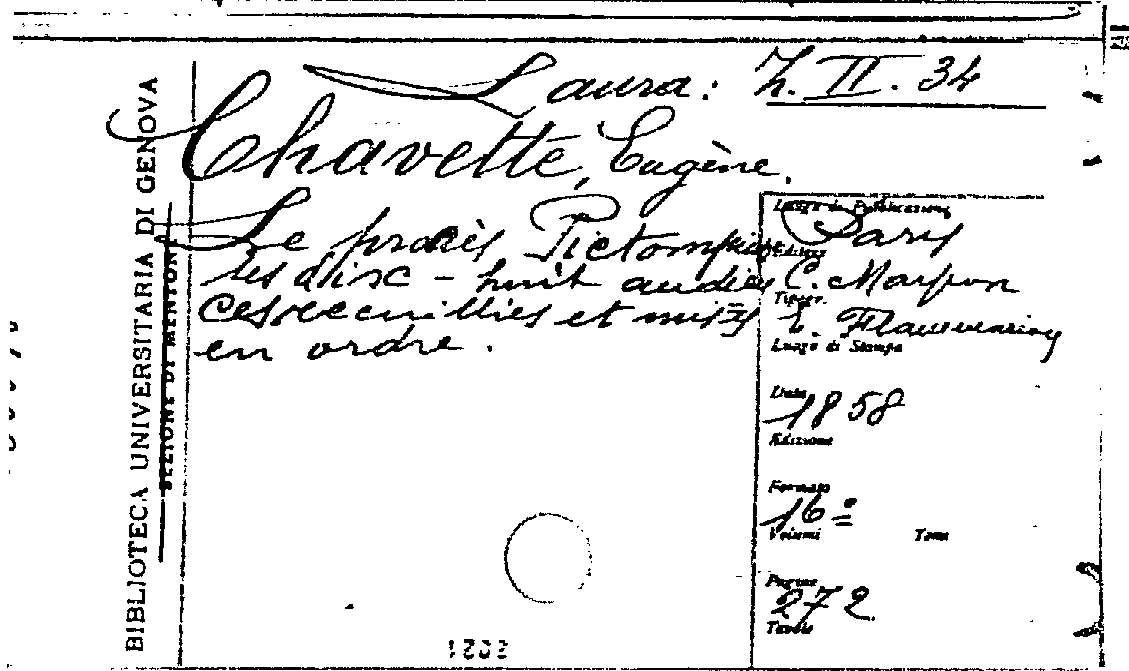 Laura: Z. II. 34
Chavette, Eugène.
Le procès Pictompin et
ses diix-huit audien
ces recueillies et mises
en ordre.
BIBLIOTECA UNIVERSITARIA DI GENOVA
SEZIONE DI MENTONE
Luogo di Pubblicazione
Paris
Editore
C. Marpon
Tipogr.
E. Flammarion
Luogo di Stampa
Data
1858
Edizione
Formato
16º
Volumi Tomi
Pagine
272
Tavole
1202